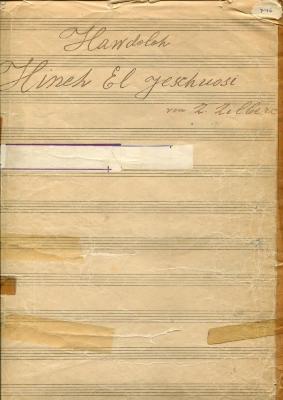 Hawdoloh
Hineh El Jeschuosi
von Z. Zilberts